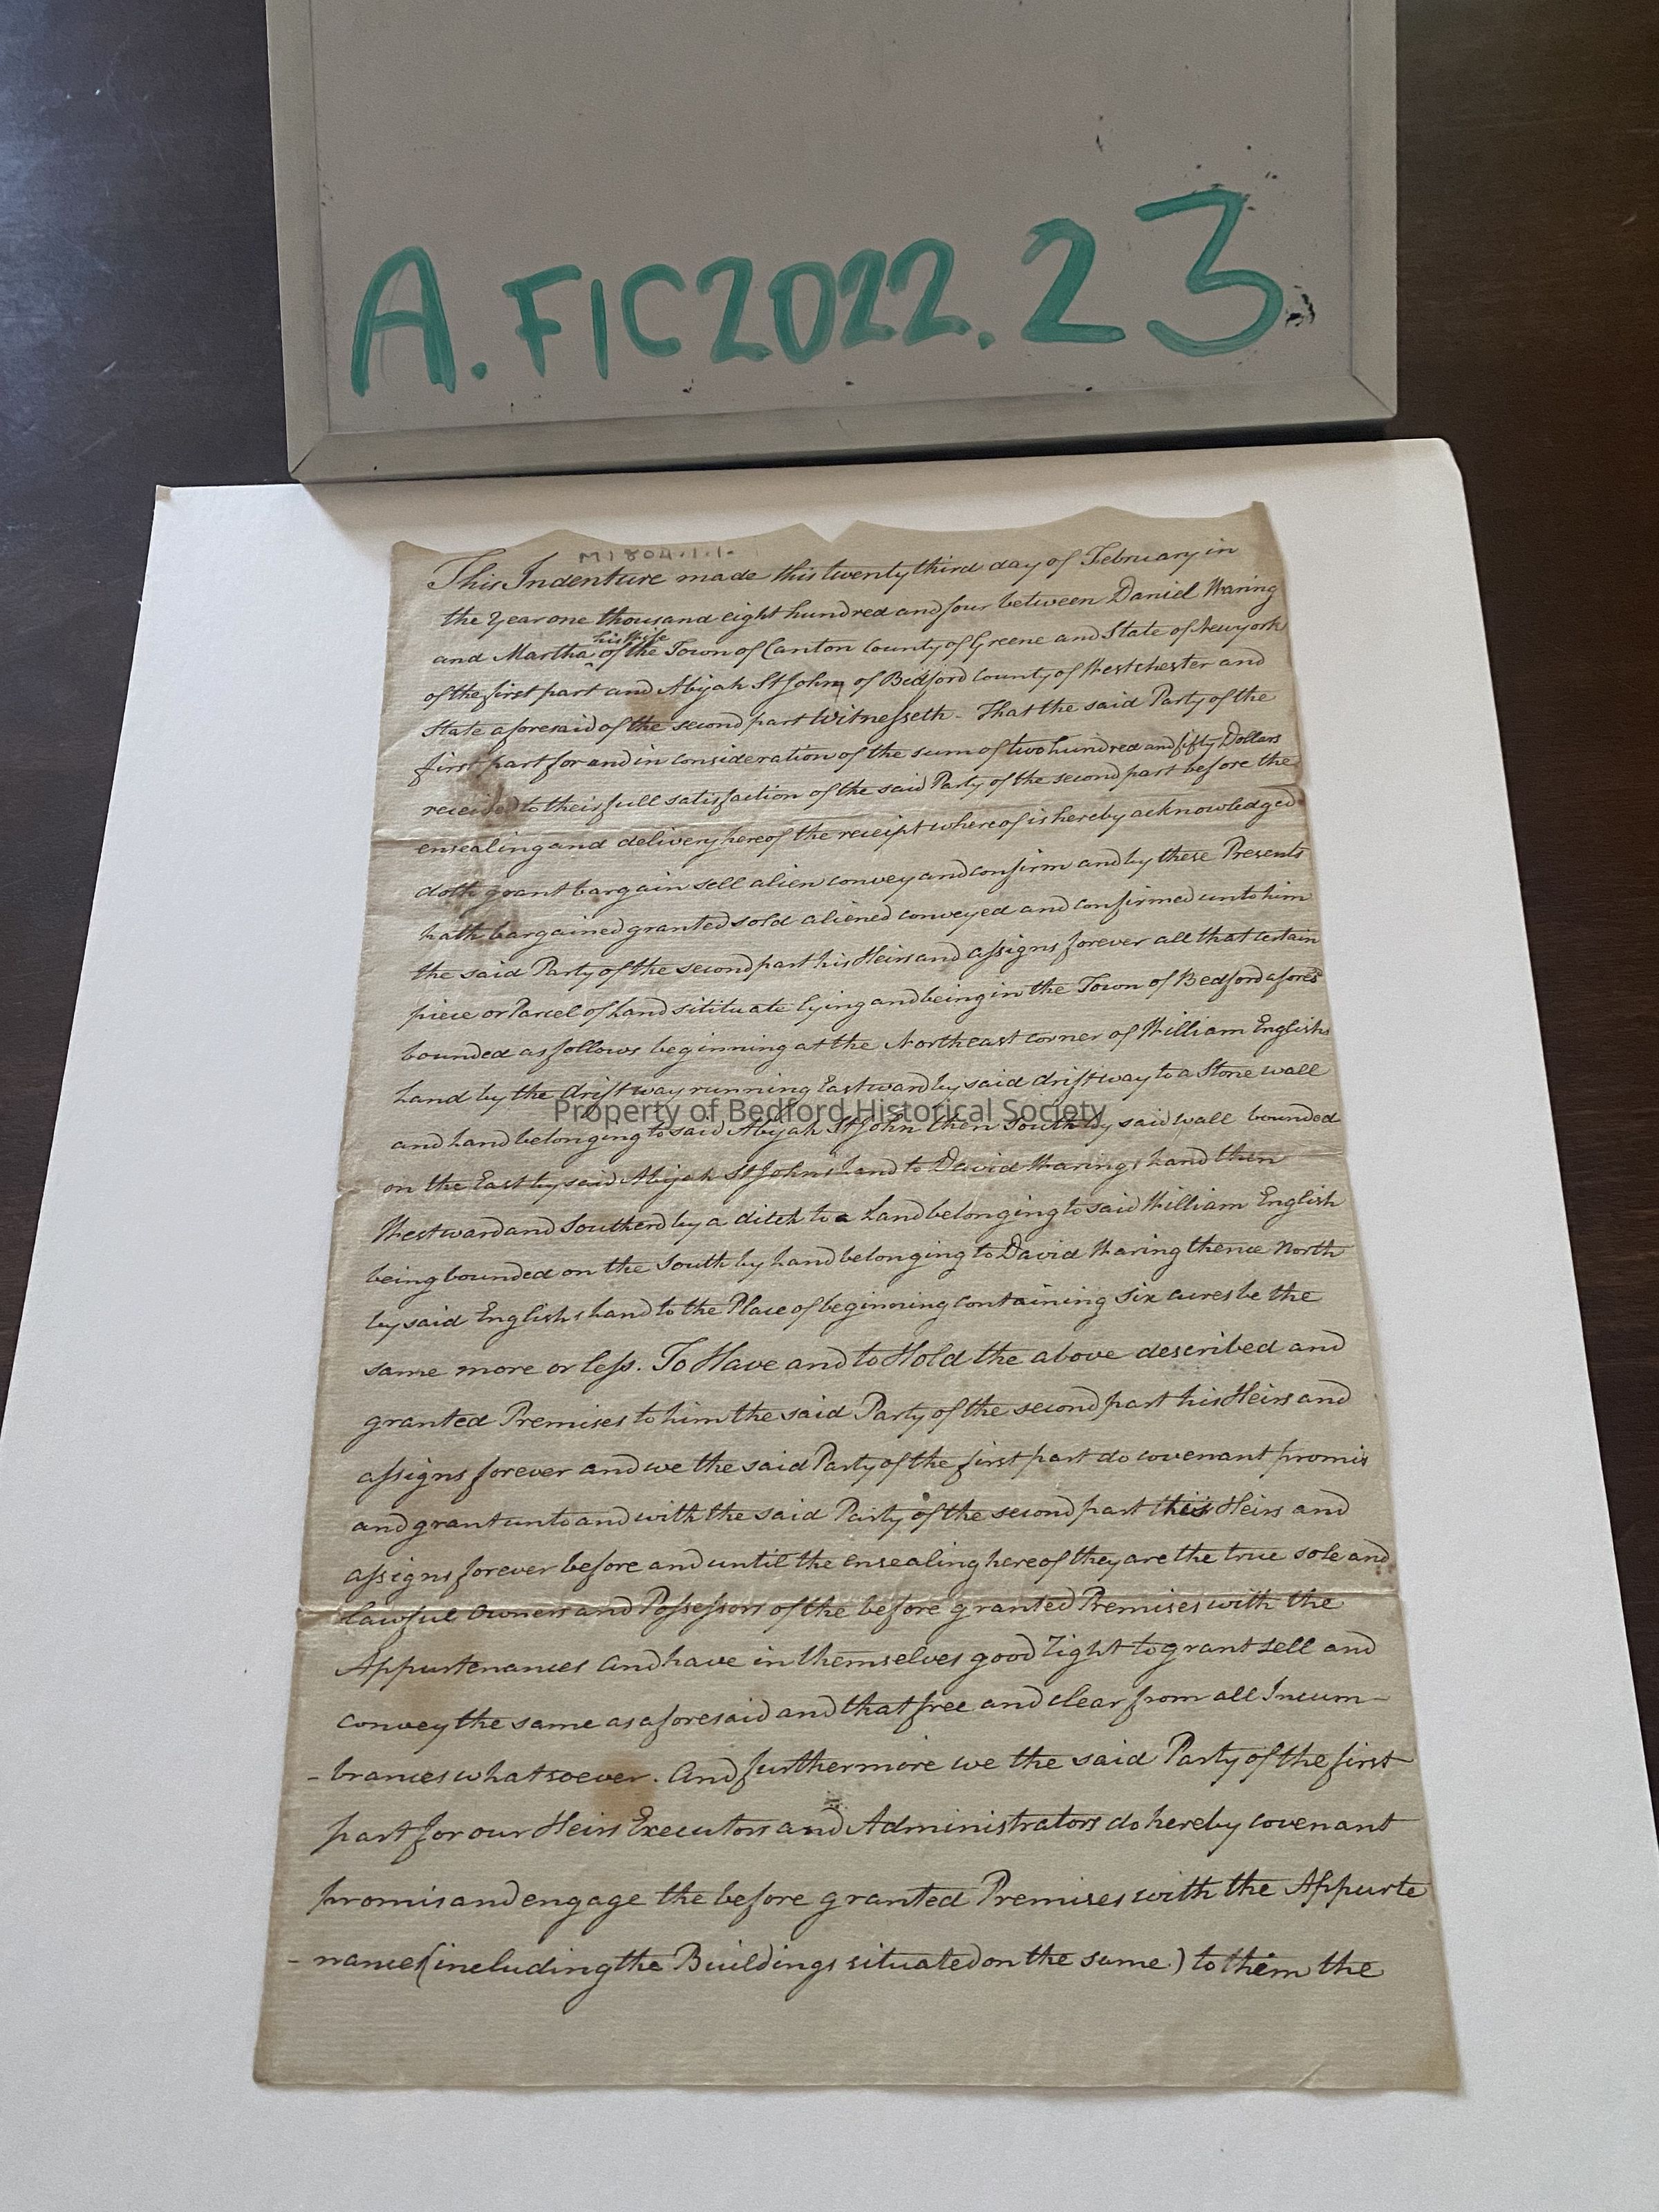 A.FIC2022.23
M1804.1.1.
This Indenture made this twenty third day of February in
the Year one thousand eight hundred and four between Daniel Waring
his Wife
and Martha ^ of the Town of Canton County of Greene and State of Newyork
of the first part and Abijah St John of Bedford County of Westchester and
State aforesaid of the second part Witnesseth - That the said Party of the
first part for and in consideration of the sum of two hundred and fifty Dollars
received to their full satisfaction of the said Party of the second part before the
ensealing and delivery hereof the receipt whereof is hereby acknowledged
doth grant bargain sell alien convey and confirm and by these Presents
hath bargained granted sold aliened conveyed and confirmed unto him
the said Party of the second part his Heirs and assigns forever all that certain
piece or Parcel of Land sitituate lying and being in the Town of Bedford afores.d
bounded as follows beginning at the Northeast corner of William Englishs
Land by the driftway running Eastward by said driftway to a Stone wall
and Land belonging to said Abijah St John then South by said wall bounded
on the East by said Abijah St Johns Land to David Warings Land then
Westward and Southerd by a ditch to a Land belonging to said William English
being bounded on the South by Land belonging to David Waring thence North
by said Englishs Land to the Place of beginning containing six acres be the
same more or less. To Have and to Hold the above described and
granted Premises to him the said Party of the second part his Heirs and
assigns forever and we the said Party of the first part do covenant promis
and grant unto and with the said Party of the second part this Heirs and
assigns forever before and until the ensealing hereof they are the true sole and
lawful Owners and Possessors of the before granted Premises with the
Appurtenances and have in themselves good right to grant sell and
convey the same as aforesaid and that free and clear from all Incum-
-brances whatsoever. And furthermore we the said Party of the first
part for our Heirs Executors and Administrators do hereby covenant
promis and engage the before granted Premises with the Appurte
-nances (including the Buildings situated on the same.) to them the
Property of Bedford Historical Society